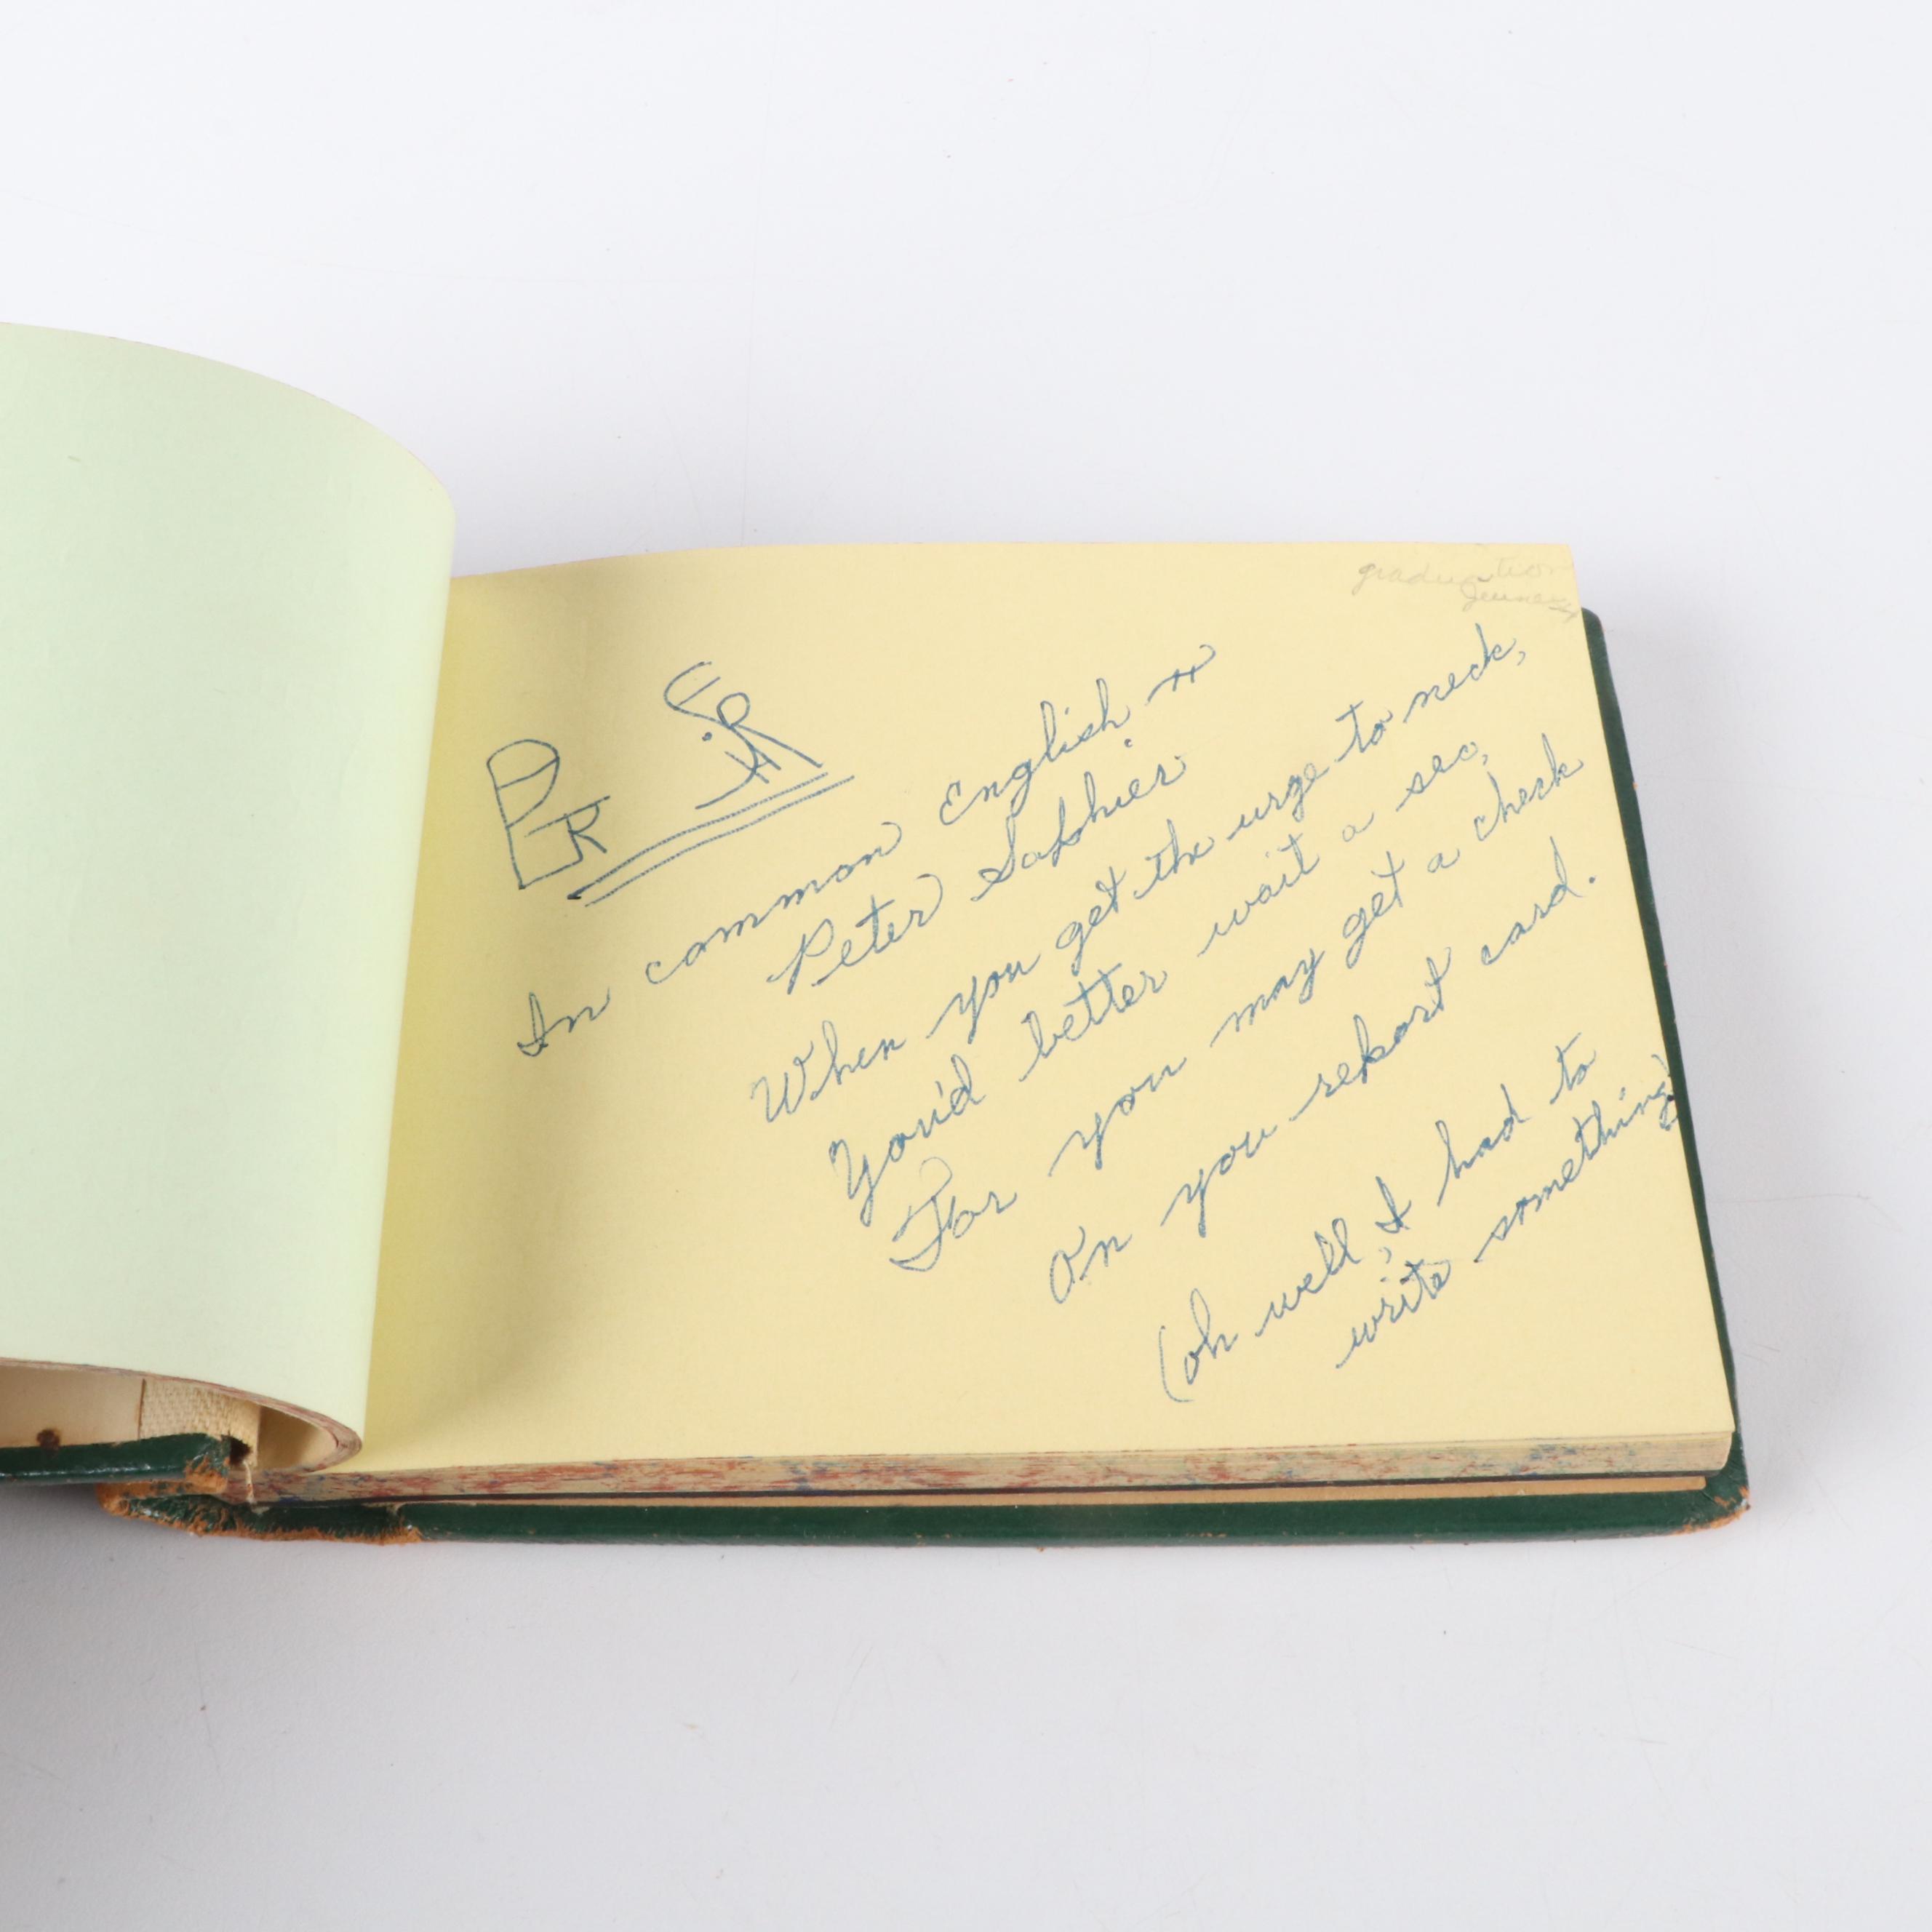 graduation
In common English
Peter
When you get the urge to neck,
You'd better wait a sec,
For you may get a check
On you report card.
(oh well, I had to
write something)